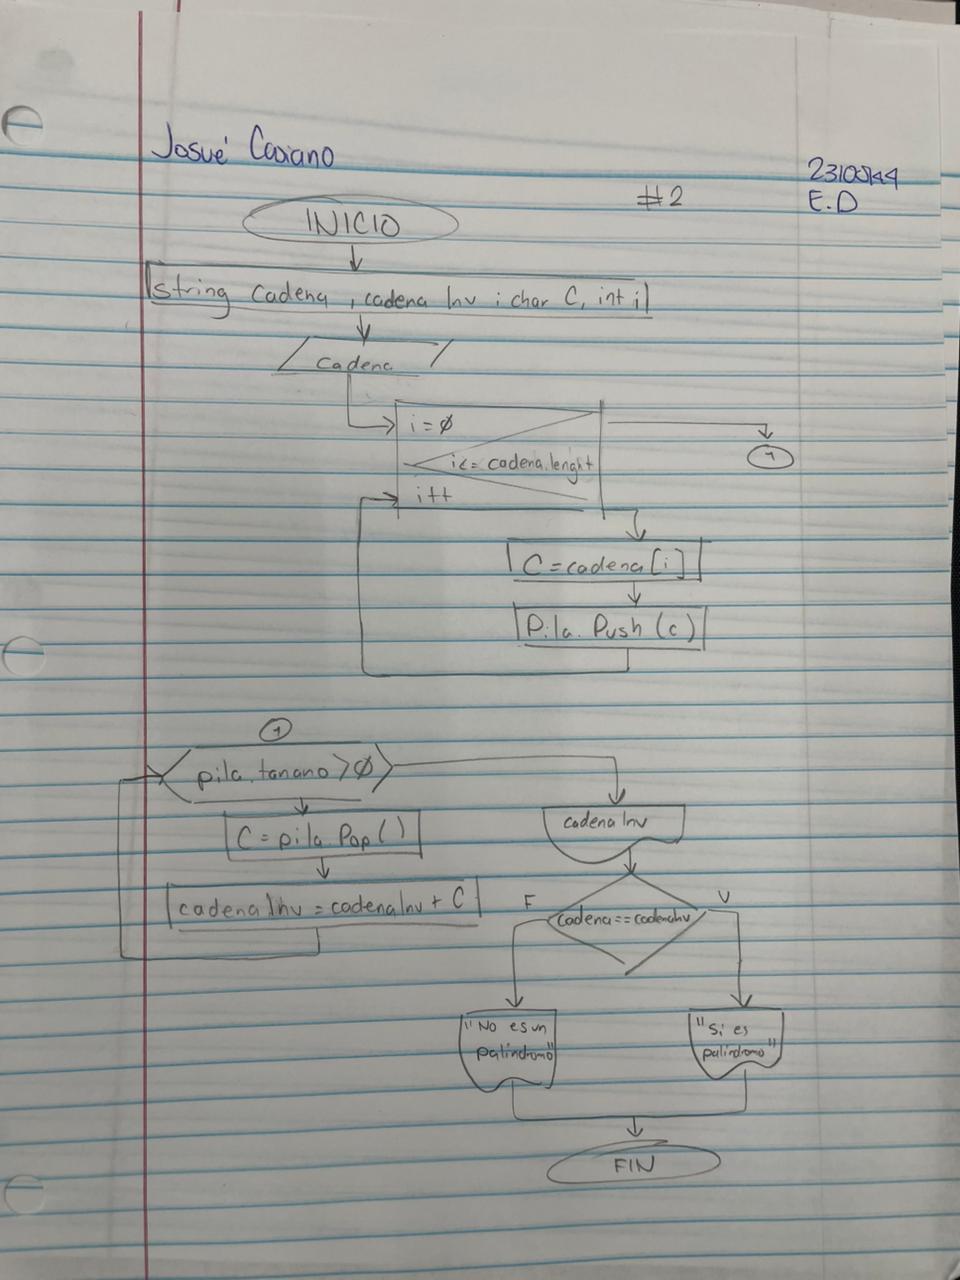 Josué Casiano
2310544
#2
E.D
INICIO
string Cadena, cadena Inv ; char C, int i
cadena
i=0
1
i<= cadena.lenght
i++
C=cadena[i]
Pila.Push (c)
1
pila.tanano>0
C=pila.Pop()
cadena Inv
cadenaInv = cadenaInv + C
F
V
Cadena==cadenaInv
"No es un
palindromo"
"Si es
palindromo"
FIN